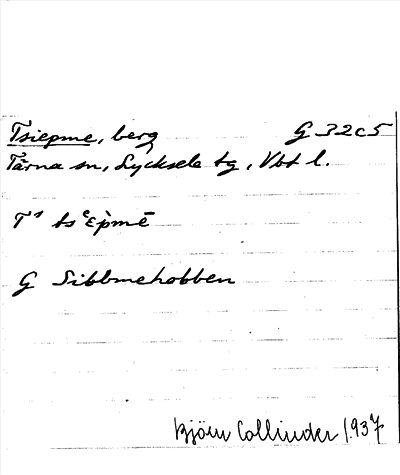 Tsiepme, berg G 32c5
Tärna sn, Lycksele tg, Vbt l.
T¹ tsᵉɛ̀pmē
G Sibbmehobben
Björn Collinder 1937